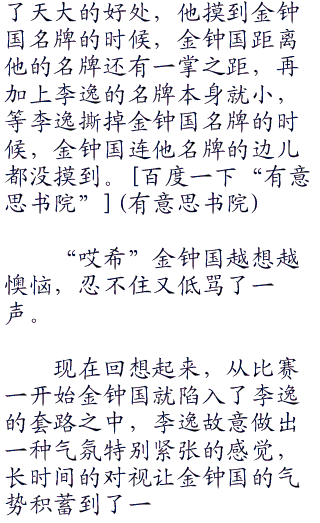 了天大的好处，他摸到金钟
国名牌的时候，金钟国距离
他的名牌还有一掌之距，再
加上李逸的名牌本身就小，
等李逸撕掉金钟国名牌的时
候，金钟国连他名牌的边儿
都没摸到。[百度一下“有意
思书院”](有意思书院)
“哎希”金钟国越想越
懊恼，忍不住又低骂了一
声。
现在回想起来，从比赛
一开始金钟国就陷入了李逸
的套路之中，李逸故意做出
一种气氛特别紧张的感觉，
长时间的对视让金钟国的气
势积蓄到了一